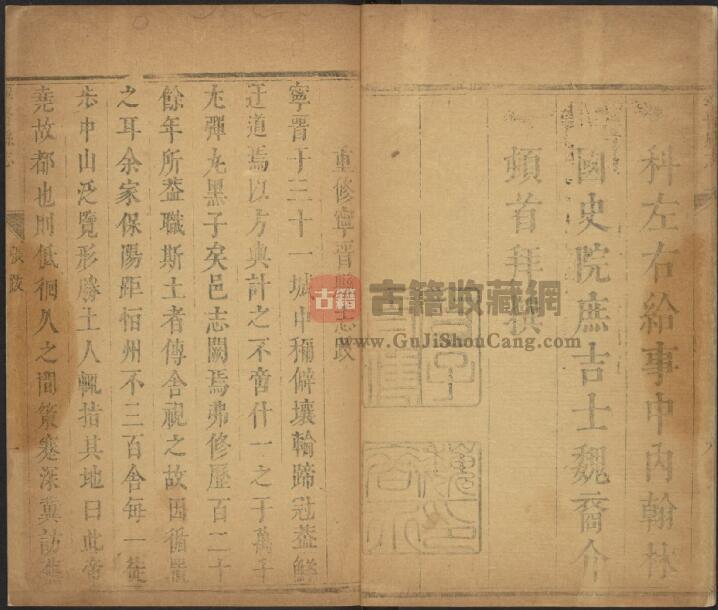 科左右給事中內翰林
國史院庶吉士魏裔介
頓首拜撰
重修寧晉縣志跋
寧晉于三十一城中稱僻壤輪蹄冠蓋鮮
迂道焉以方輿計之不啻什一之于萬千
尤彈丸黑子矣邑志闕焉弗修歷百二十
餘年所蓋職斯土者傳舍視之故因循置
之耳余家保陽距恒州不三百舍每一徒
步中山泛覽形勝土人輒指其地曰此帝
堯故都也則低徊久之間策蹇深冀訪
張跋
一
古籍
古籍收藏网
www.GuJiShouCang.com